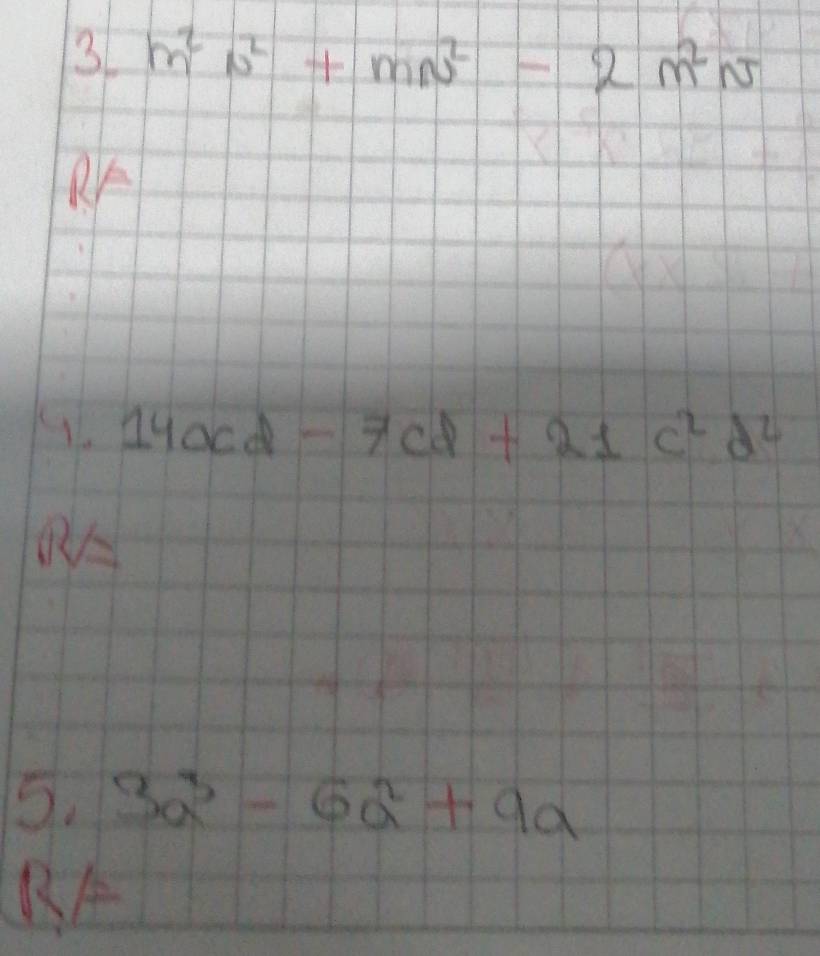 3. m² n² + mn² - 2 m² n
R/=
4. 14acd - 7cd + 21 c² d²
R/=
5. 3a³ - 6a² + 9a
R/=